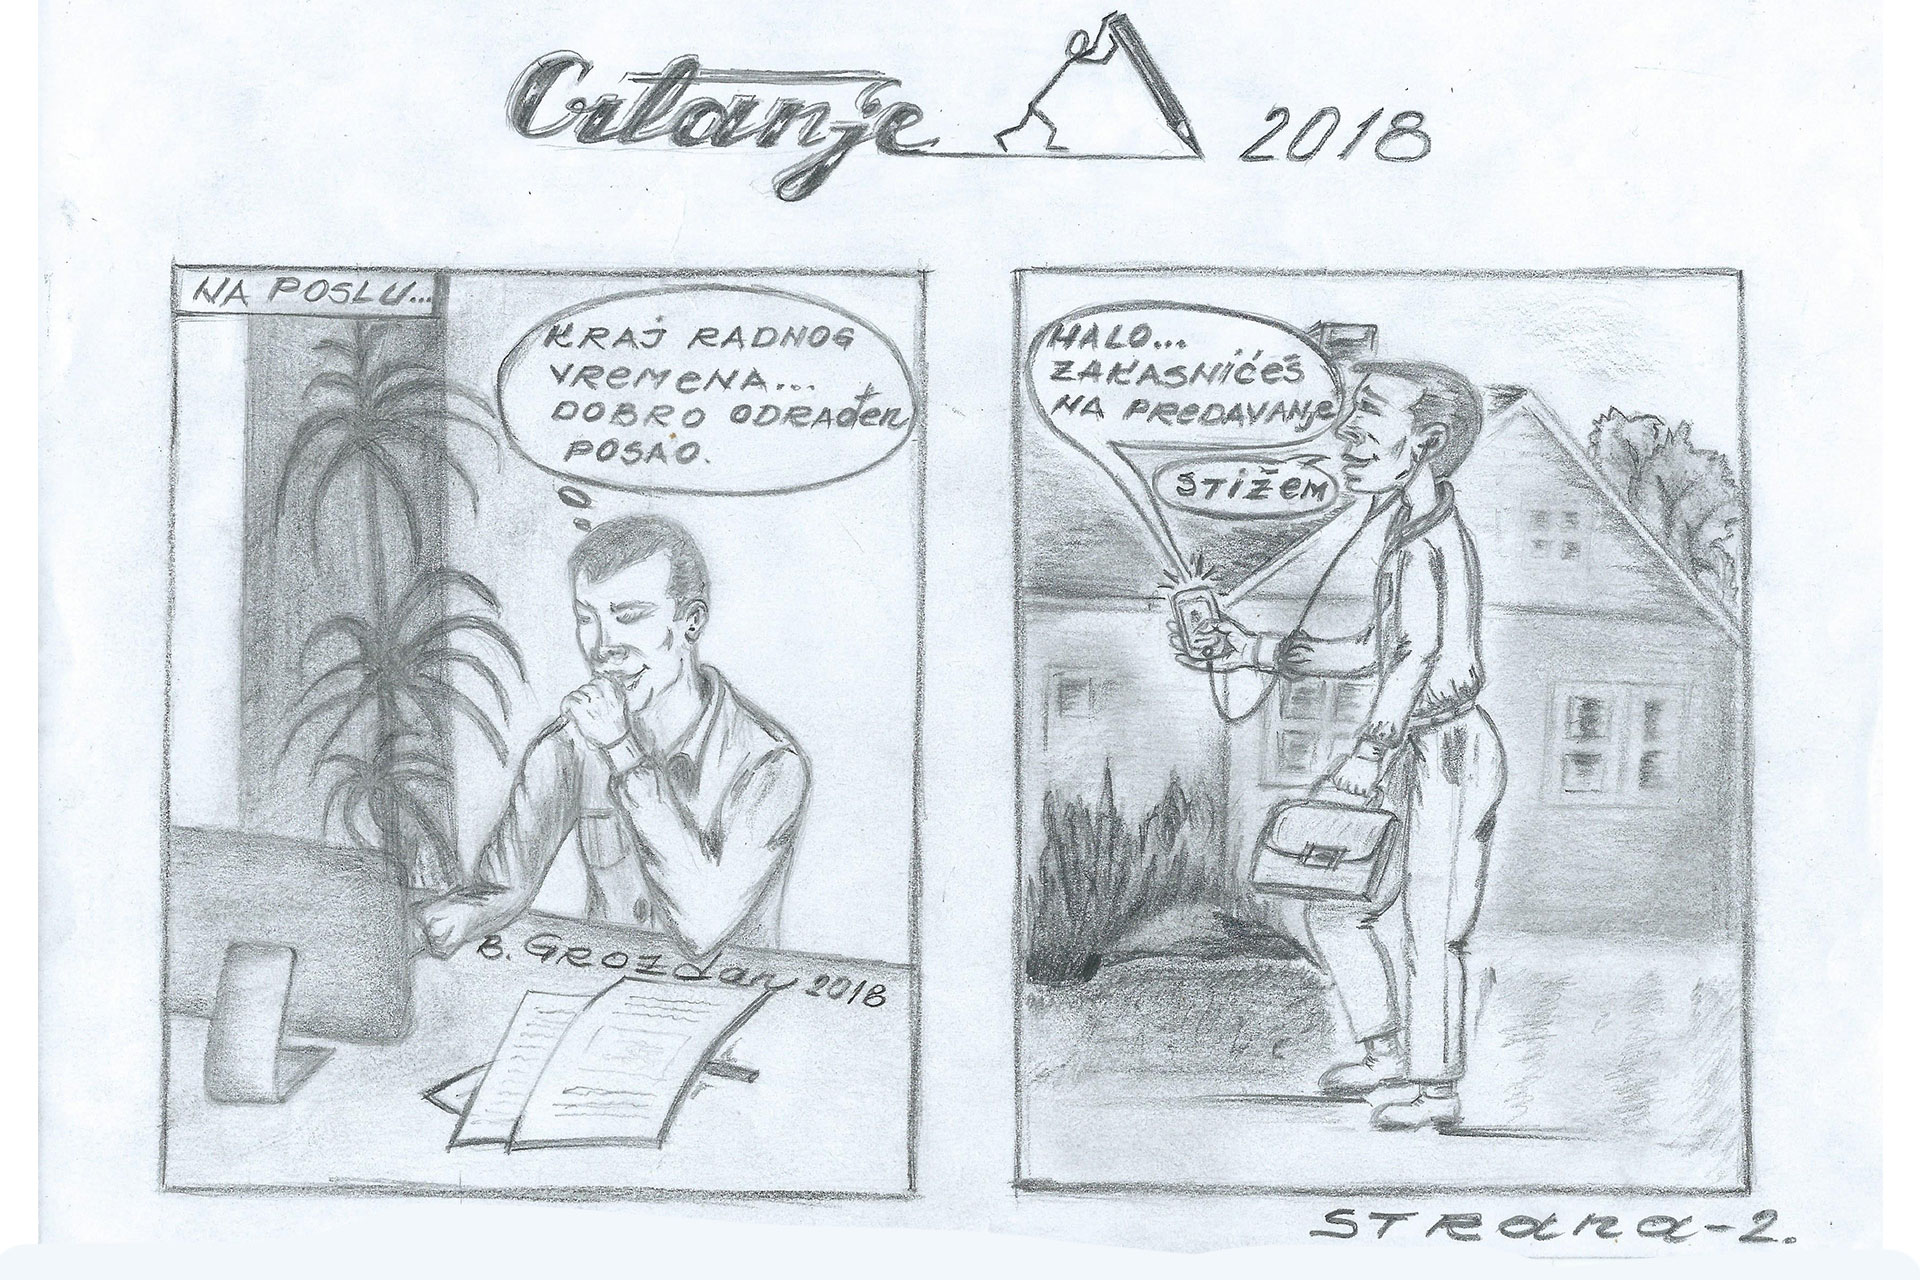 Crtanje 2018
NA POSLU...
KRAJ RADNOG
VREMENA...
DOBRO ODRAĐEN
POSAO.
B. GROZdan 2018
HALO...
ZAKASNIĆEŠ
NA PREDAVANJE
STIŽEM
STRana-2.